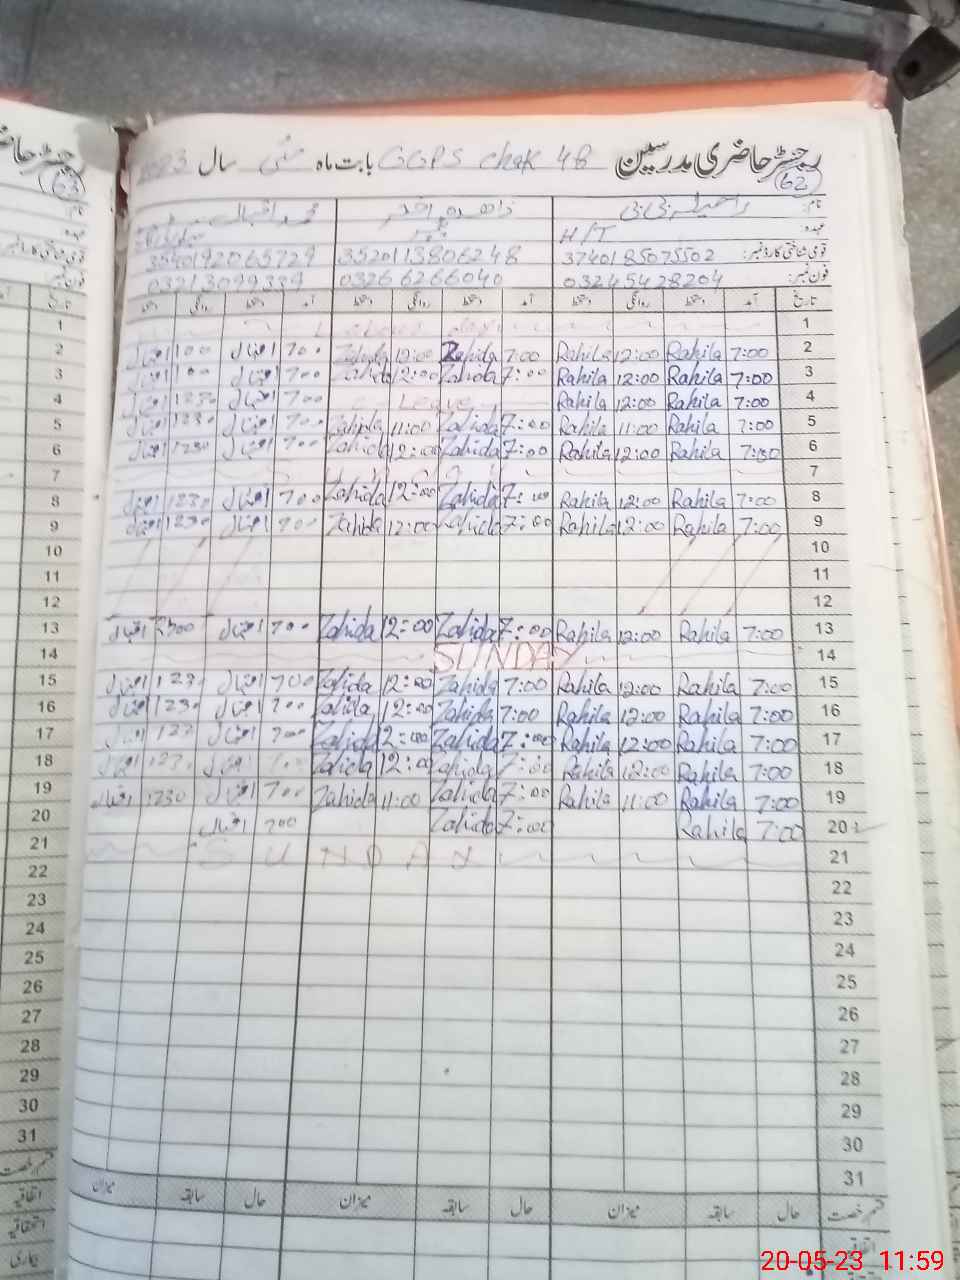 رجسٹر حاضری مدرسین GGPS chak 4B بابت ماہ مئی سال 2023
62
63
نام:
عہدہ: H/T
قومی شناختی کارڈ نمبر: 3740185075502 3520113806248 3540192065729
فون نمبر: 03245428204 03266266040 03213099339
تاریخ آمد دستخط روانگی دستخط آمد دستخط روانگی دستخط آمد دستخط روانگی دستخط
1
2 7:00 Rahila 12:00 Rahila 7:00 Zahida 12:00 Zahida 700 اقبال 100 اقبال
3 7:00 Rahila 12:00 Rahila 7:00 Zahida 12:00 Zahida 700 اقبال 100 اقبال
4 7:00 Rahila 12:00 Rahila Leave 700 اقبال 1230 اقبال
5 7:00 Rahila 11:00 Rahila 7:00 Zahida 11:00 Zahida 700 اقبال 1230 اقبال
6 7:00 Rahila 12:00 Rahila 7:00 Zahida 12:00 Zahida 700 اقبال 1230 اقبال
7
8 7:00 Rahila 12:00 Rahila 7:00 Zahida 12:00 Zahida 700 اقبال 1230 اقبال
9 7:00 Rahila 12:00 Rahila 7:00 Zahida 12:00 Zahida 700 اقبال 1230 اقبال
10
11
12
13 7:00 Rahila 12:00 Rahila 7:00 Zahida 12:00 Zahida 700 اقبال اقبال
14 SUNDAY
15 7:00 Rahila 12:00 Rahila 7:00 Zahida 12:00 Zahida 700 اقبال 123 اقبال
16 7:00 Rahila 12:00 Rahila 7:00 Zahida 12:00 Zahida 700 اقبال 1230 اقبال
17 7:00 Rahila 12:00 Rahila 7:00 Zahida 12:00 Zahida 700 اقبال اقبال
18 7:00 Rahila 12:00 Rahila 7:00 Zahida 12:00 Zahida اقبال 1230 اقبال
19 7:00 Rahila 11:00 Rahila 7:00 Zahida 11:00 Zahida 700 اقبال 1230 اقبال
20 7:00 Rahila 7:00 Zahida 700 اقبال
21 SUNDAY
22
23
24
25
26
27
28
29
30
31
قسم رخصت حال سابقہ میزان حال سابقہ میزان حال سابقہ میزان
اتفاقیہ
20-05-23 11:59